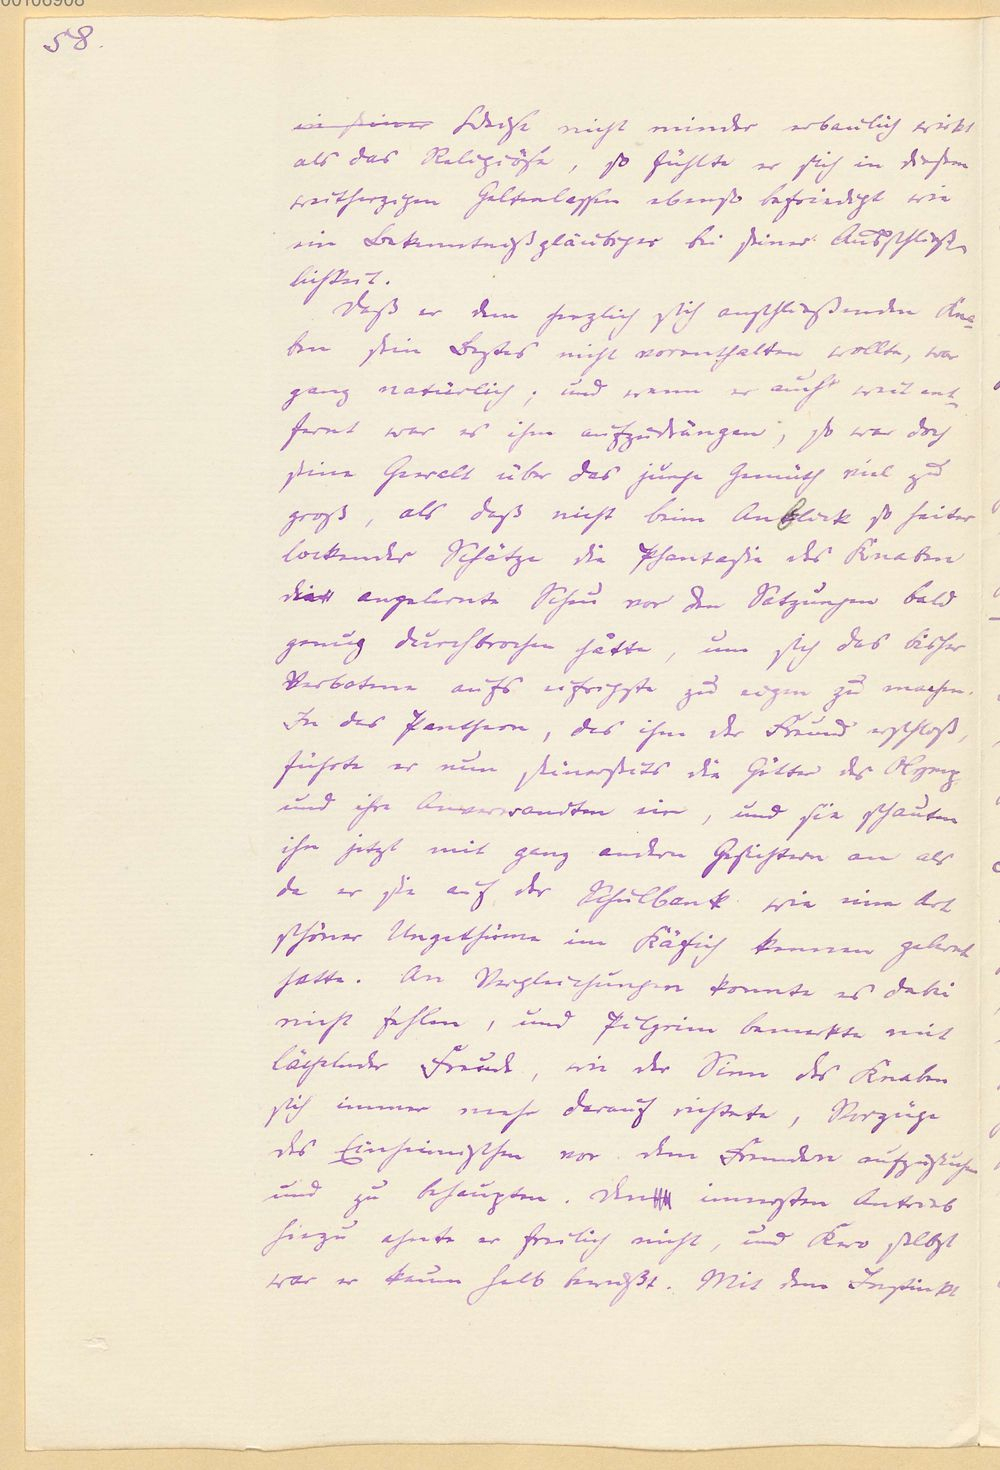 00106908
58.
in seiner Weise nicht minder erbaulich wirkt
als das Religiöse, so fühlte er sich in diesem
weitherzigen Geltenlassen ebenso befriedigt wie
ein Bekenntnißgläubiger bei seiner Ausschließ-
lichkeit.
Daß er dem herzlich sich anschließenden Kna-
ben sein Bestes nicht vorenthalten wollte, war
ganz natürlich; und wenn er auch weit ent-
fernt war es ihm aufzudrängen, so war doch
seine Gewalt über das junge Gemüth viel zu
groß, als daß nicht beim Anblick so heiter
lockender Schätze die Phantasie des Knaben
die angelernte Scheu vor den Satzungen bald
genug durchbrochen hätte, um sich das bisher
Verbotene aufs eifrigste zu eigen zu machen.
In das Pantheon, das ihm der Freund erschloß,
führte er nun seinerseits die Götter des Olymp
und ihre Anverwandten ein, und sie schauten
ihn jetzt mit ganz andern Gesichtern an als
da er sie auf der Schulbank wie eine Art
schöner Ungethüme im Käfich kennen gelernt
hatte. An Vergleichungen konnte es dabei
nicht fehlen, und Pilgrim bemerkte mit
lächelnder Freude, wie der Sinn des Knaben
sich immer mehr darauf richtete, Vorzüge
des Einheimischen vor dem Fremden aufzusuchen
und zu behaupten. Den innersten Antrieb
hiezu ahnte er freilich nicht, und Kero selbst
war er kaum halb bewußt. Mit dem Instinkt